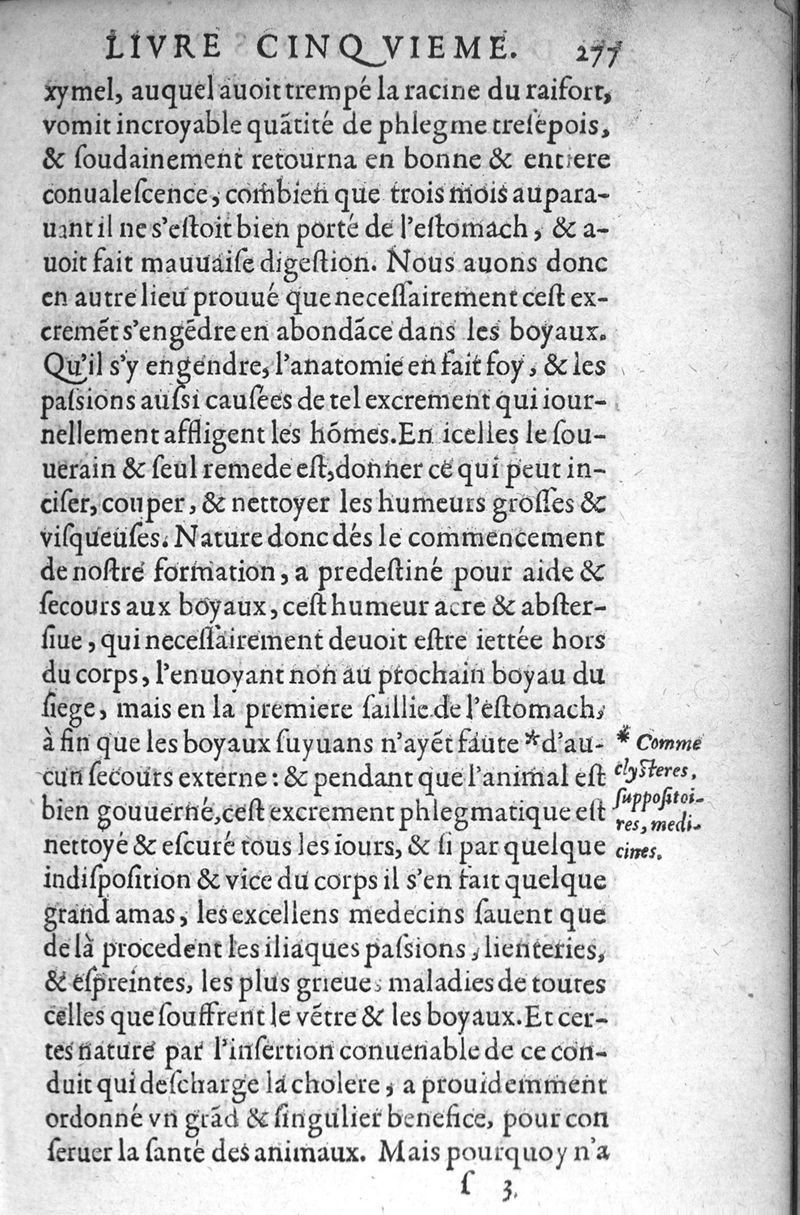 LIVRE CINQVIEME. 277
xymel, auquel auoit trempé la racine du raifort,
vomit incroyable quãtité de phlegme treſepois,
& ſoudainement retourna en bonne & entiere
conualeſcence, combien que trois mois aupara-
uant il ne s'eſtoit bien porté de l'eſtomach, & a-
uoit fait mauuaiſe digeſtion. Nous auons donc
en autre lieu prouué que neceſſairement ceſt ex-
cremẽt s'engẽdre en abondãce dans les boyaux.
Qu'il s'y engendre, l'anatomie en fait foy, & les
paſsions auſsi cauſées de tel excrement qui iour-
nellement affligent les hõmes. En icelles le ſou-
uerain & ſeul remede eſt, donner ce qui peut in-
ciſer, couper, & nettoyer les humeurs groſſes &
viſqueuſes. Nature donc dés le commencement
de noſtre formation, a predeſtiné pour aide &
ſecours aux boyaux, ceſt humeur acre & abſter-
ſiue, qui neceſſairement deuoit eſtre iettée hors
du corps, l'enuoyant non au prochain boyau du
ſiege, mais en la premiere ſaillie de l'eſtomach,
à fin que les boyaux ſuyuans n'ayẽt faute *d'au-
cun ſecours externe: & pendant que l'animal eſt
bien gouuerné, ceſt excrement phlegmatique eſt
nettoyé & eſcuré tous les iours, & ſi par quelque
indiſpoſition & vice du corps il s'en fait quelque
grand amas, les excellens medecins ſauent que
de là procedent les iliaques paſsions, lienteries,
& eſpreintes, les plus grieues maladies de toutes
celles que ſouffrent le vẽtre & les boyaux. Et cer-
tes nature par l'inſertion conuenable de ce con-
duit qui deſcharge la cholere, a prouidemment
ordonné vn grãd & ſingulier benefice, pour con
ſeruer la ſanté des animaux. Mais pourquoy n'a
ſ 3.
* Comme
clyſteres,
ſuppoſitoi-
res, medi-
cines.